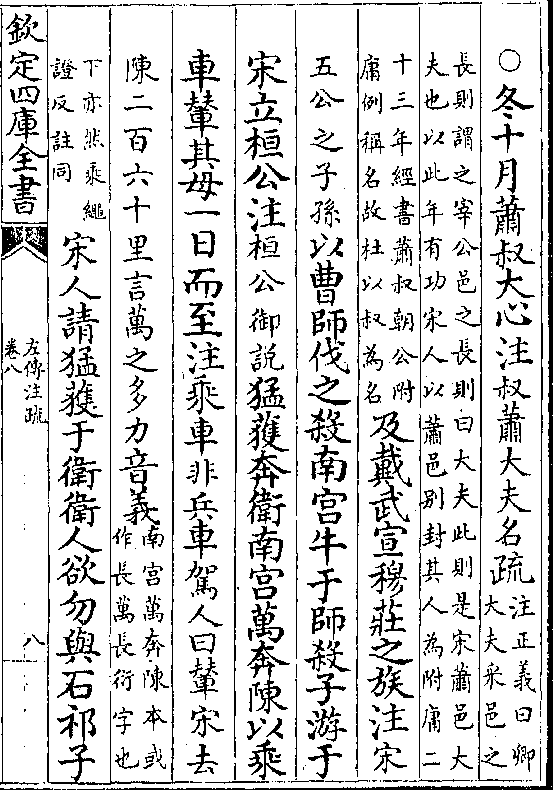 ○冬十月蕭叔大心注叔蕭大夫名疏注正義曰卿
大夫采邑之
長則謂之宰公邑之長則曰大夫此則是宋蕭邑大
夫也以此年有功宋人以蕭邑别封其人為附庸二
十三年經書蕭叔朝公附
庸例稱名故杜以叔為名
及戴武宣穆莊之族注宋
五公之子孫以曹師伐之殺南宫牛于師殺子游于
宋立桓公注桓公御說猛獲奔衛南宫萬奔陳以乘
車輦其母一日而至注乘車非兵車駕人曰輦宋去
陳二百六十里言萬之多力音義南宫萬奔陳本或
作長萬長衍字也
下亦然乘繩
證反註同
宋人請猛獲于衛衛人欲勿與石祁子
欽定四庫全書
左傳注疏
卷八
八